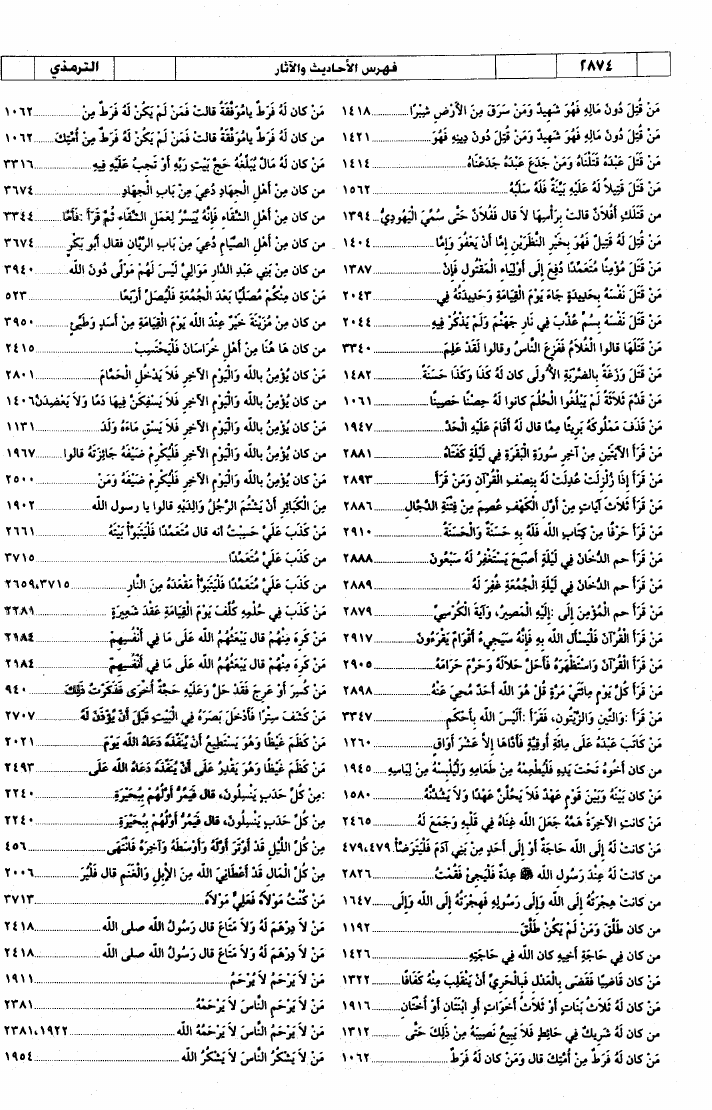 ٢٨٧٤
فهرس الأحاديث والآثار
الترمذي
مَنْ قُتِلَ دُونَ مَالِهِ فَهُوَ شَهِيدٌ وَمَنْ سَرَقَ مِنَ الأَرْضِ شِبْرًا ١٤١٨
مَنْ قُتِلَ دُونَ مَالِهِ فَهُوَ شَهِيدٌ وَمَنْ قُتِلَ دُونَ دِينِهِ فَهُوَ ١٤٢١
مَنْ قَتَلَ عَبْدَهُ قَتَلْنَاهُ وَمَنْ جَدَعَ عَبْدَهُ جَدَعْنَاهُ ١٤١٤
مَنْ قَتَلَ قَتِيلاً لَهُ عَلَيْهِ بَيِّنَةٌ فَلَهُ سَلَبُهُ ١٥٦٢
من قَتَلَكِ أَفُلاَنٌ قالت بِرَأْسِهَا لاَ قال فَفُلاَنٌ حَتَّى سُمِّيَ الْيَهُودِيُّ ١٣٩٤
مَنْ قُتِلَ لَهُ قَتِيلٌ فَهُوَ بِخَيْرِ النَّظَرَيْنِ إِمَّا أَنْ يَعْفُوَ وَإِمَّا ١٤٠٤
مَنْ قَتَلَ مُؤْمِنًا مُتَعَمِّدًا دُفِعَ إِلَى أَوْلِيَاءِ الْمَقْتُولِ فَإِنْ ١٣٨٧
مَنْ قَتَلَ نَفْسَهُ بِحَدِيدَةٍ جَاءَ يَوْمَ الْقِيَامَةِ وَحَدِيدَتُهُ فِي ٢٠٤٣
مَنْ قَتَلَ نَفْسَهُ بِسُمٍّ عُذِّبَ فِي نَارِ جَهَنَّمَ وَلَمْ يَذْكُرْ فِيهِ ٢٠٤٤
مَنْ قَتَلَهَا قالوا الْغُلاَمُ فَفَزِعَ النَّاسُ وقالوا لَقَدْ عَلِمَ ٣٣٤٠
مَنْ قَتَلَ وَزَغَةً بِالضَّرْبَةِ الأُولَى كان لَهُ كَذَا وَكَذَا حَسَنَةً ١٤٨٢
مَنْ قَدَّمَ ثَلاَثَةً لَمْ يَبْلُغُوا الْحُلُمَ كانوا لَهُ حِصْنًا حَصِينًا ١٠٦١
مَنْ قَذَفَ مَمْلُوكَهُ بَرِيئًا مِمَّا قال لَهُ أَقَامَ عَلَيْهِ الْحَدَّ ١٩٤٧
مَنْ قَرَأَ الآيَتَيْنِ مِنْ آخِرِ سُورَةِ الْبَقَرَةِ فِي لَيْلَةٍ كَفَتَاهُ ٢٨٨١
مَنْ قَرَأَ إِذَا زُلْزِلَتْ عُدِلَتْ لَهُ بِنِصْفِ الْقُرْآنِ وَمَنْ قَرَأَ ٢٨٩٣
مَنْ قَرَأَ ثَلاَثَ آيَاتٍ مِنْ أَوَّلِ الْكَهْفِ عُصِمَ مِنْ فِتْنَةِ الدَّجَّالِ ٢٨٨٦
مَنْ قَرَأَ حَرْفًا مِنْ كِتَابِ اللهِ فَلَهُ بِهِ حَسَنَةٌ وَالْحَسَنَةُ ٢٩١٠
مَنْ قَرَأَ حم الدُّخَانَ فِي لَيْلَةٍ أَصْبَحَ يَسْتَغْفِرُ لَهُ سَبْعُونَ ٢٨٨٨
مَنْ قَرَأَ حم الدُّخَانَ فِي لَيْلَةِ الْجُمُعَةِ غُفِرَ لَهُ ٢٨٨٩
مَنْ قَرَأَ حم الْمُؤْمِنَ إِلَى :إِلَيْهِ الْمَصِيرُ، وَآيَةَ الْكُرْسِيِّ ٢٨٧٩
مَنْ قَرَأَ الْقُرْآنَ فَلْيَسْأَلِ اللهَ بِهِ فَإِنَّهُ سَيَجِيءُ أَقْوَامٌ يَقْرَءُونَ ٢٩١٧
مَنْ قَرَأَ الْقُرْآنَ وَاسْتَظْهَرَهُ فَأَحَلَّ حَلاَلَهُ وَحَرَّمَ حَرَامَهُ ٢٩٠٥
مَنْ قَرَأَ كُلَّ يَوْمٍ مِائَتَيْ مَرَّةٍ قُلْ هُوَ اللهُ أَحَدٌ مُحِيَ عَنْهُ ٢٨٩٨
مَنْ قَرَأَ :وَالتِّينِ وَالزَّيْتُونِ، فَقَرَأَ :أَلَيْسَ اللهُ بِأَحْكَمِ ٣٣٤٧
مَنْ كَاتَبَ عَبْدَهُ عَلَى مِائَةِ أُوقِيَّةٍ فَأَدَّاهَا إِلاَّ عَشْرَ أَوَاقٍ ١٢٦٠
مَن كان أَخُوهُ تَحْتَ يَدِهِ فَلْيُطْعِمْهُ مِنْ طَعَامِهِ وَلْيُلْبِسْهُ مِنْ لِبَاسِهِ ١٩٤٥
مَن كان بَيْنَهُ وَبَيْنَ قَوْمٍ عَهْدٌ فَلاَ يَحُلَّنَّ عَهْدًا وَلاَ يَشُدَّنَّهُ ١٥٨٠
مَنْ كانتِ الآخِرَةُ هَمَّهُ جَعَلَ اللهُ غِنَاهُ فِي قَلْبِهِ وَجَمَعَ لَهُ ٢٤٦٥
مَنْ كانت لَهُ إِلَى اللهِ حَاجَةٌ أَوْ إِلَى أَحَدٍ مِنْ بَنِي آدَمَ فَلْيَتَوَضَّأْ ٤٧٩،٤٧٩
من كانت لَهُ عِنْدَ رَسُولِ الله ﷺ عِدَةٌ فَلْيَجِئْ فَقُمْتُ ٢٨٢٦
من كانت هِجْرَتُهُ إِلَى اللهِ وَإِلَى رَسُولِهِ فَهِجْرَتُهُ إِلَى اللهِ وَإِلَى ١٦٤٧
من كان طَلَّقَ وَمَنْ لَمْ يَكُنْ طَلَّقَ ١١٩٢
من كان فِي حَاجَةِ أَخِيهِ كان الله فِي حَاجَتِهِ ١٤٢٦
مَنْ كان قَاضِيًا فَقَضَى بِالْعَدْلِ فَبِالْحَرِيِّ أَنْ يَنْقَلِبَ مِنْهُ كَفَافًا ١٣٢٢
مَنْ كان لَهُ ثَلاَثُ بَنَاتٍ أَوْ ثَلاَثُ أَخَوَاتٍ أو ابْنَتَانِ أَوْ أُخْتَانِ ١٩١٦
من كان لَهُ شَرِيكٌ فِي حَائِطٍ فَلاَ يَبِيعُ نَصِيبَهُ مِنْ ذَلِكَ حَتَّى ١٣١٢
مَنْ كان لَهُ فَرَطٌ مِنْ أُمَّتِكَ قال وَمَنْ كان لَهُ فَرَطٌ ١٠٦٢
مَنْ كان لَهُ فَرَطٌ يامُوَفَّقَةُ قالت فَمَنْ لَمْ يَكُنْ لَهُ فَرَطٌ مِنْ ١٠٦٢
مَنْ كان لَهُ فَرَطٌ يامُوَفَّقَةُ قالت فَمَنْ لَمْ يَكُنْ لَهُ فَرَطٌ مِنْ أُمَّتِكَ ١٠٦٢
مَنْ كان لَهُ مَالٌ يُبَلِّغُهُ حَجَّ بَيْتِ رَبِّهِ أَوْ تَجِبُ عَلَيْهِ فِيهِ ٣٣١٦
من كان مِنْ أَهْلِ الْجِهَادِ دُعِيَ مِنْ بَابِ الْجِهَادِ ٣٦٧٤
من كان مِنْ أَهْلِ الشَّقَاءِ فَإِنَّهُ يُيَسَّرُ لِعَمَلِ الشَّقَاءِ ثُمَّ قَرَأَ :فَأَمَّا ٣٣٤٤
من كان مِنْ أَهْلِ الصِّيَامِ دُعِيَ مِنْ بَابِ الرَّيَّانِ فقال أَبُو بَكْرٍ ٣٦٧٤
من كان مِنْ بَنِي عَبْدِ الدَّارِ مَوَالِيَّ لَيْسَ لَهُمْ مَوْلًى دُونَ الله ٣٩٤٠
مَن كان مِنْكُمْ مُصَلِّيًا بَعْدَ الْجُمُعَةِ فَلْيُصَلِّ أَرْبَعًا ٥٢٣
من كان مِنْ مُزَيْنَةَ خَيْرٌ عِنْدَ الله يَوْمَ الْقِيَامَةِ مِنْ أَسَدٍ وَطَيِّئٍ ٣٩٥٠
من كان هَا هُنَا مِنْ أَهْلِ خُرَاسَانَ فَلْيَحْتَسِبْ ٢٤١٥
من كان يُؤْمِنُ بالله وَالْيَوْمِ الآخِرِ فَلاَ يَدْخُلِ الْحَمَّامَ ٢٨٠١
من كان يُؤْمِنُ بالله وَالْيَوْمِ الآخِرِ فَلاَ يَسْفِكَنَّ فِيهَا دَمًا وَلاَ يَعْضِدَنَّ ١٤٠٦
من كان يُؤْمِنُ بالله وَالْيَوْمِ الآخِرِ فَلاَ يَسْقِ مَاءَهُ وَلَدَ ١١٣١
من كان يُؤْمِنُ بالله وَالْيَوْمِ الآخِرِ فَلْيُكْرِمْ ضَيْفَهُ جَائِزَتَهُ قالوا ١٩٦٧
من كان يُؤْمِنُ بالله وَالْيَوْمِ الآخِرِ فَلْيُكْرِمْ ضَيْفَهُ وَمَنْ ٢٥٠٠
مِنَ الْكَبَائِرِ أَنْ يَشْتُمَ الرَّجُلُ وَالِدَيْهِ قالوا يا رسول الله ١٩٠٢
مَنْ كَذَبَ عَلَيَّ حَسِبْتُ أنه قال مُتَعَمِّدًا فَلْيَتَبَوَّأْ بَيْتَهُ ٢٦٦١
من كَذَبَ عَلَيَّ مُتَعَمِّدًا ٣٧١٥
من كَذَبَ عَلَيَّ مُتَعَمِّدًا فَلْيَتَبَوَّأْ مَقْعَدَهُ مِنَ النَّارِ ٢٦٥٩،٣٧١٥
مَنْ كَذَبَ فِي حُلْمِهِ كُلِّفَ يَوْمَ الْقِيَامَةِ عَقْدَ شَعِيرَةٍ ٢٢٨١
مَنْ كَرِهَ مِنْهُمْ قال يَبْعَثُهُمُ الله عَلَى مَا فِي أَنْفُسِهِمْ ٢١٨٤
مَنْ كَرِهَ مِنْهُمْ قال يَبْعَثُهُمُ الله عَلَى مَا فِي أَنْفُسِهِمْ ٢١٨٤
مَنْ كُسِرَ أَوْ عَرِجَ فَقَدْ حَلَّ وَعَلَيْهِ حَجَّةٌ أُخْرَى فَذَكَرْتُ ذَلِكَ ٩٤٠
مَنْ كَشَفَ سِتْرًا فَأَدْخَلَ بَصَرَهُ فِي الْبَيْتِ قَبْلَ أَنْ يُؤْذَنَ لَهُ ٢٧٠٧
مَنْ كَظَمَ غَيْظًا وَهُوَ يَسْتَطِيعُ أَنْ يُنَفِّذَهُ دَعَاهُ الله يَوْمَ ٢٠٢١
مَنْ كَظَمَ غَيْظًا وَهُوَ يَقْدِرُ عَلَى أَنْ يُنَفِّذَهُ دَعَاهُ الله عَلَى ٢٤٩٣
:مِنْ كُلِّ حَدَبٍ يَنْسِلُونَ، قال فَيَمُرُّ أَوَّلُهُمْ بِبُحَيْرَةِ ٢٢٤٠
مِنْ كُلِّ حَدَبٍ يَنْسِلُونَ، قال فَيَمُرُّ أَوَّلُهُمْ بِبُحَيْرَةِ ٢٢٤٠
مِنْ كُلِّ اللَّيْلِ قَدْ أَوْتَرَ أَوَّلَهُ وَأَوْسَطَهُ وَآخِرَهُ فَانْتَهَى ٤٥٦
مِنْ كُلِّ الْمَالِ قَدْ أَعْطَانِيَ الله مِنَ الإِبِلِ وَالْغَنَمِ قال فَلْيُرَ ٢٠٠٦
مَنْ كُنْتُ مَوْلاَهُ فَعَلِيٌّ مَوْلاَهُ ٣٧١٣
مَنْ لاَ دِرْهَمَ لَهُ وَلاَ مَتَاعَ قال رَسُولُ اللهِ صلى الله ٢٤١٨
مَنْ لاَ دِرْهَمَ لَهُ وَلاَ مَتَاعَ قال رَسُولُ اللهِ صلى الله ٢٤١٨
مَنْ لاَ يَرْحَمُ لاَ يُرْحَمُ ١٩١١
مَنْ لاَ يَرْحَمِ النَّاسَ لاَ يَرْحَمْهُ ٢٣٨١
مَنْ لاَ يَرْحَمُ النَّاسَ لاَ يَرْحَمُهُ الله ٢٣٨١،١٩٢٢
مَنْ لاَ يَشْكُرُ النَّاسَ لاَ يَشْكُرُ الله ١٩٥٤